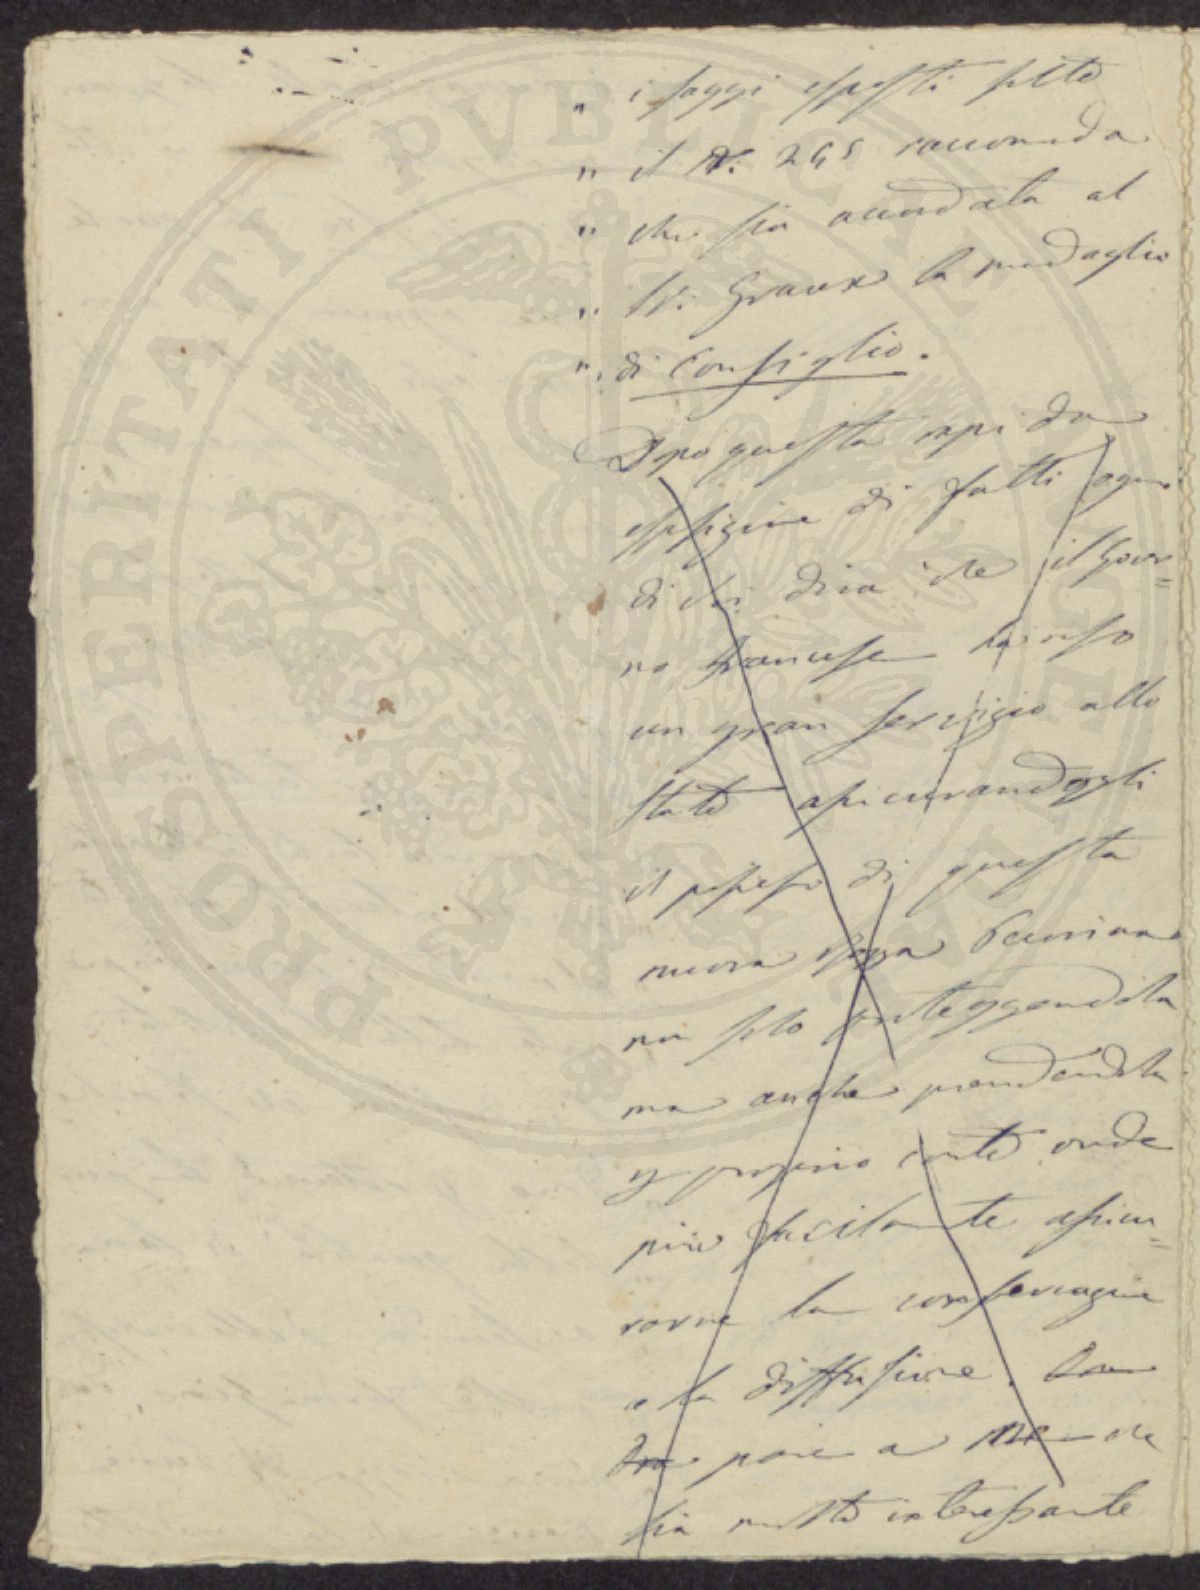 " i saggi esposti sotto
" il N. 245 raccomanda
" che sia accordata al
" Sr. Graux la medaglia
" di Consiglio.
Dopo questa rapida
esposizione di fatti ognu
di Voi dirà che il Gover=
no francese ha reso
un gran servizio allo
Stato assicurandogli
il possesso di questa
nuova razza
non solo proteggendola
ma anche prendendola
per proprio conto onde
più facilmente assicu=
rarne la conservazione
e la diffusione.
pare a me che
sia molto interessante
PROSPERITATI PVBLICAE